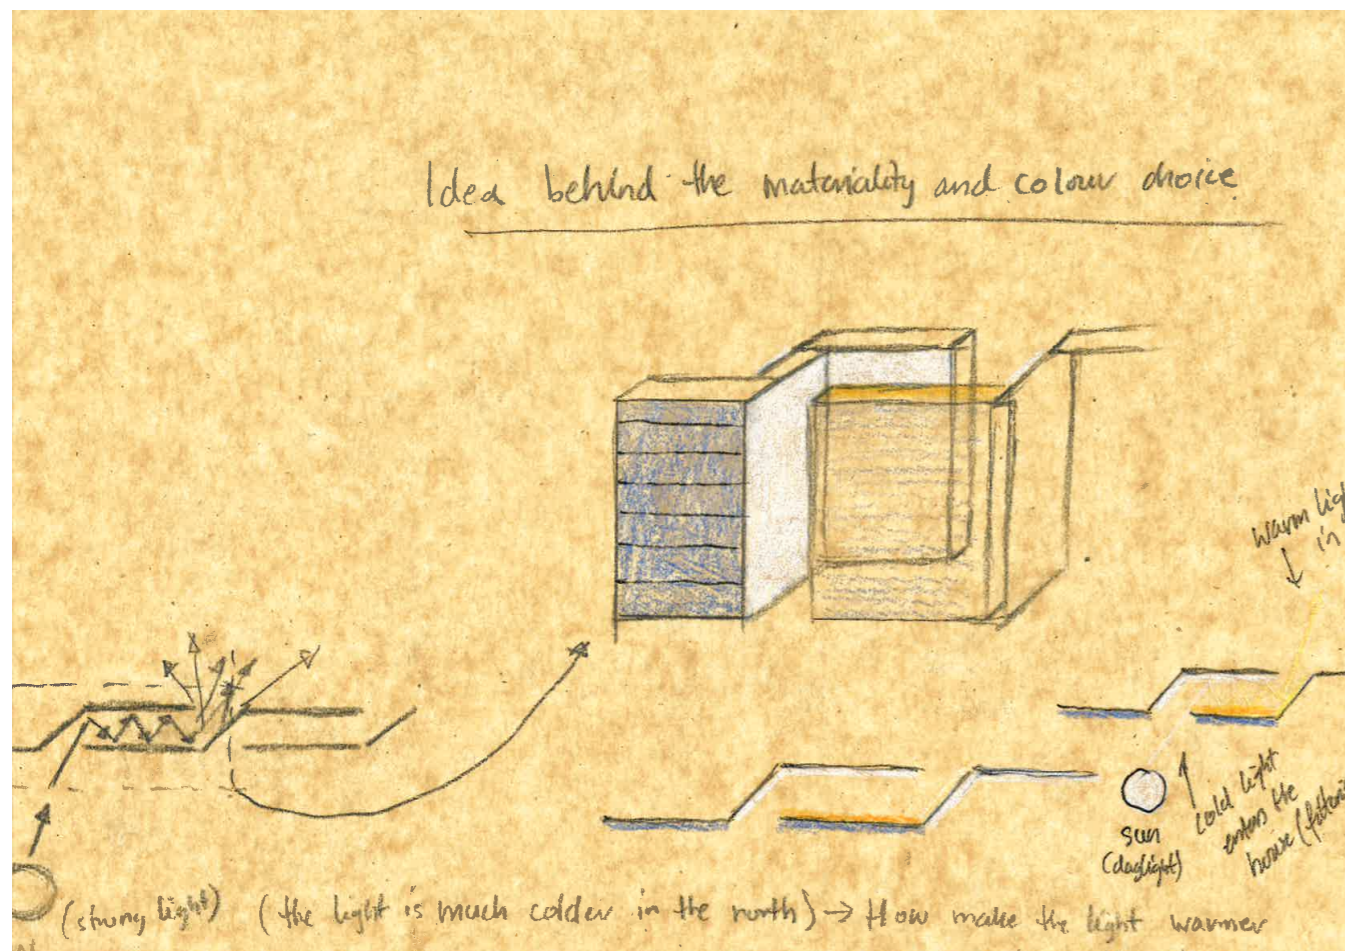 Idea behind the materiality and colour choice
warm
in
cold light
enters the
house
sun
(daylight)
(strong light) (the light is much colder in the north) → How make the light warmer